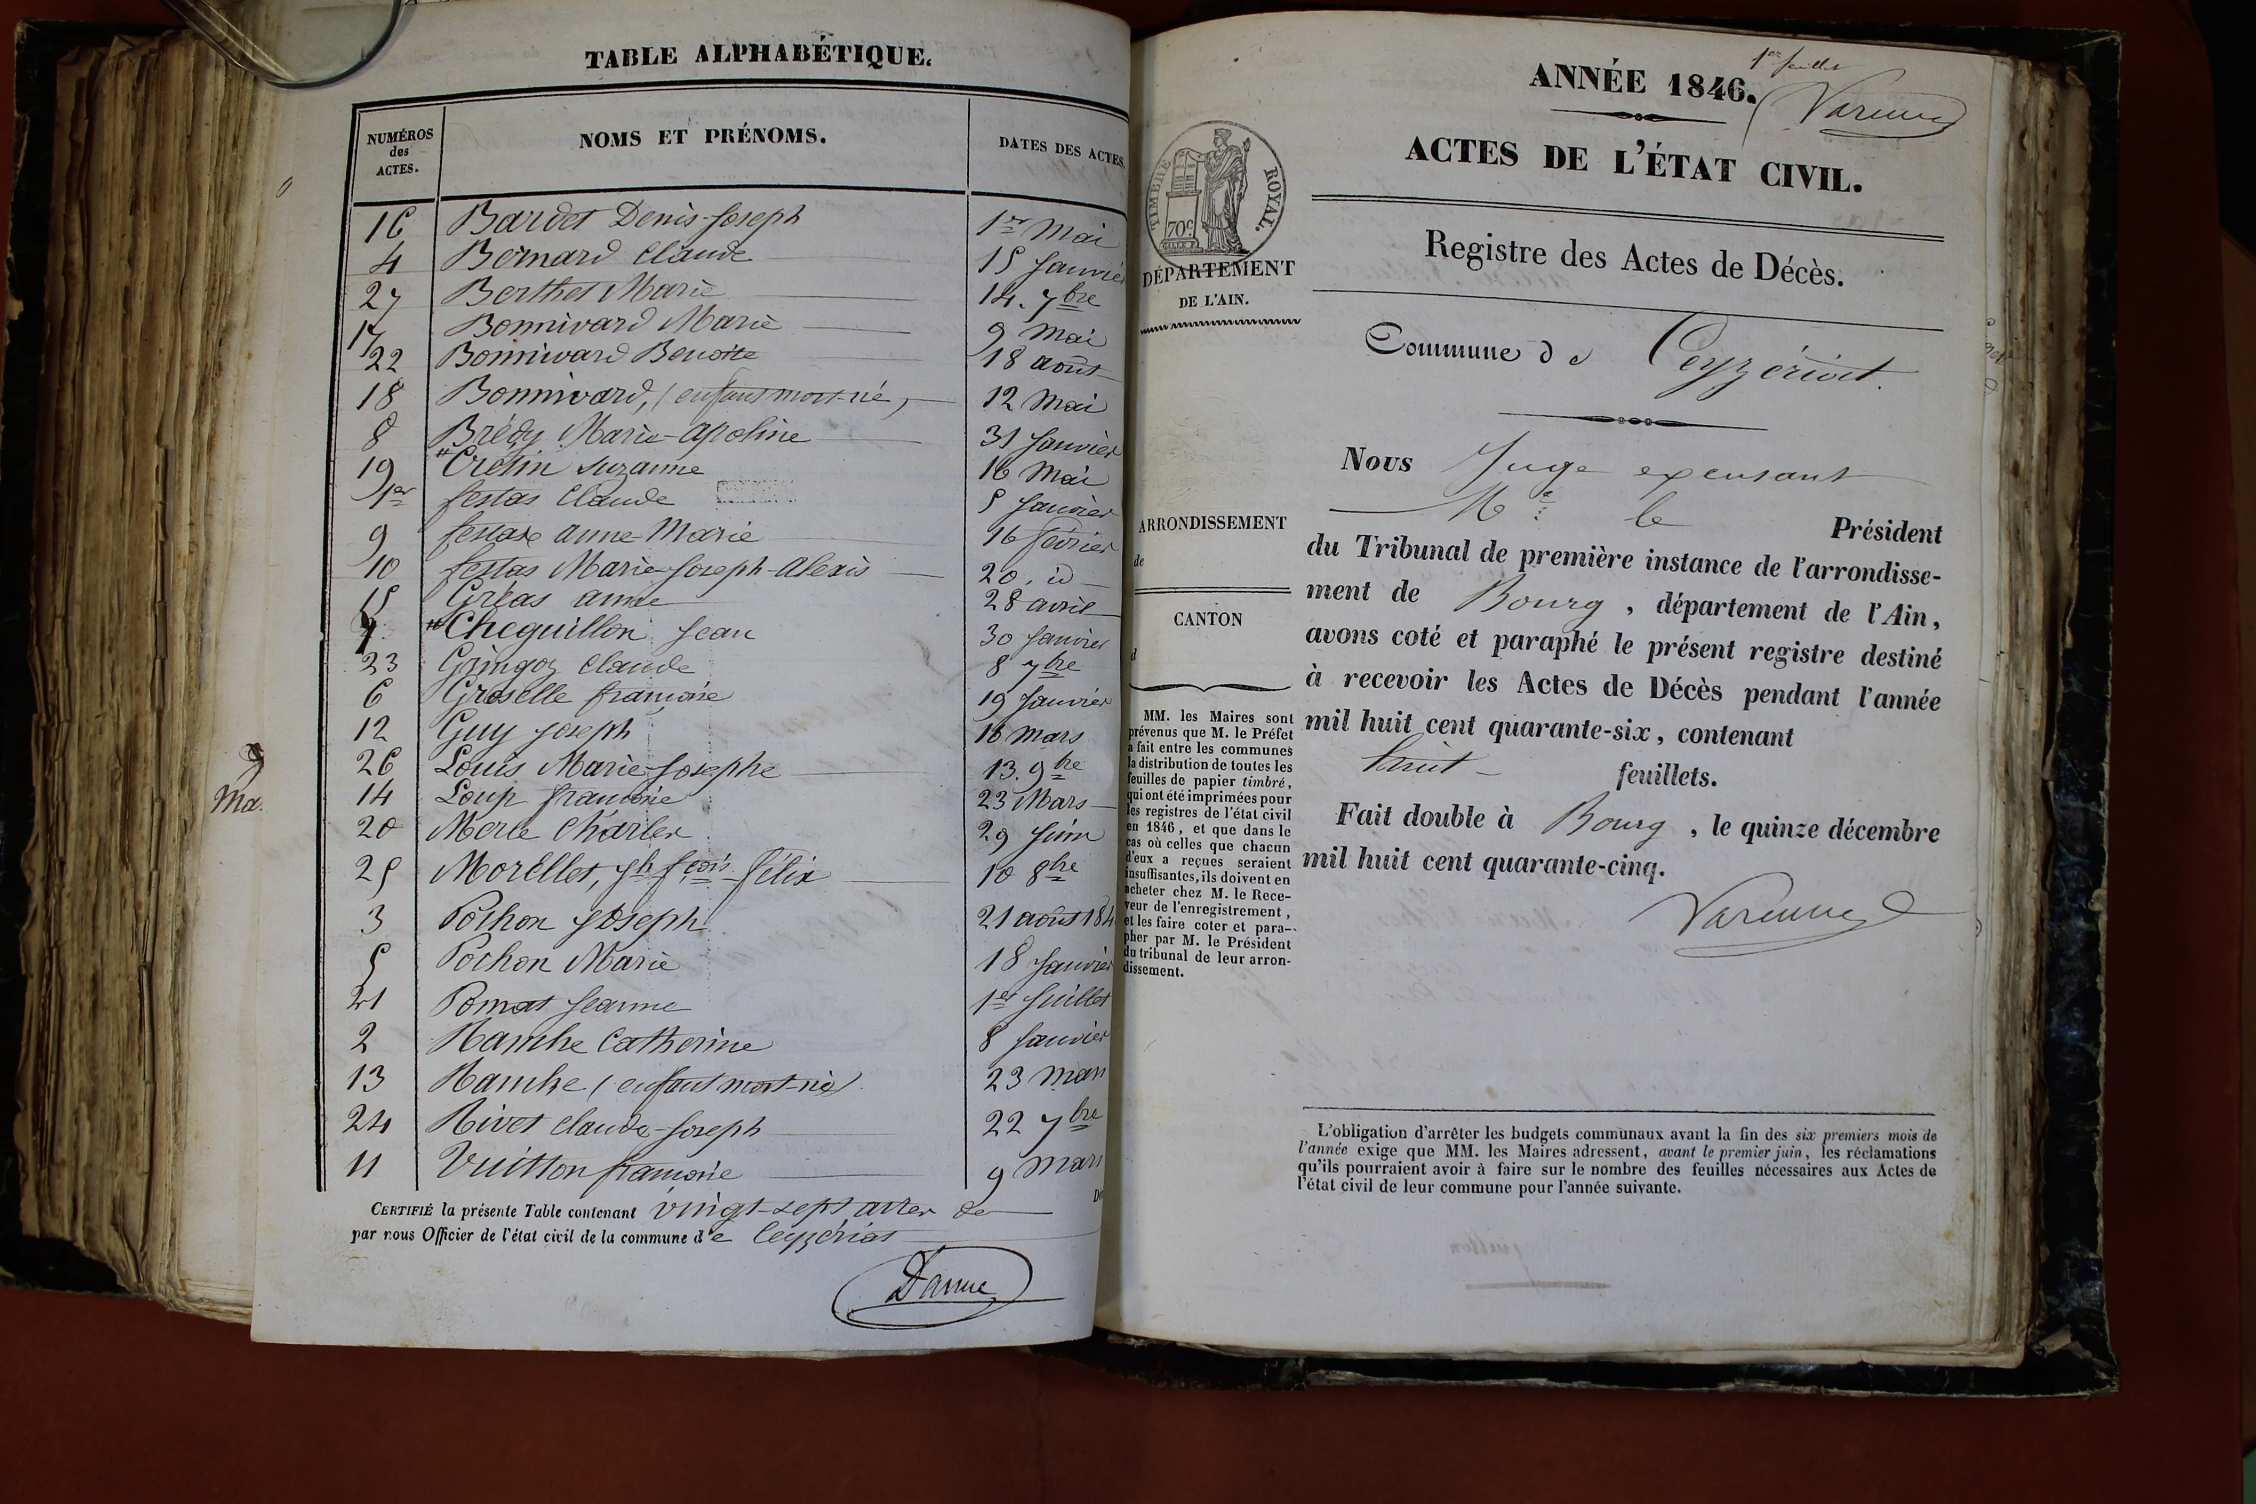 TABLE ALPHABÉTIQUE.
NUMÉROS des ACTES. NOMS ET PRÉNOMS. DATES DES ACTES.
16 Bardet Denis-Joseph 1er Mai
4 Bernard Claude 15 Janvier
27 Berthet Marie 14. 9bre
17 Bonnivard Marie 9 Mai
22 Bonnivard Benoite 18 août
18 Bonnivard, (enfant mort-né) 12 Mai
8 Brédy Marie-Apoline 31 Janvier
19 Cretin Suzanne 16 Mai
1er festas Claude 5 Janvier
9 festas anne-Marie 16 février
10 festas Marie-Joseph-Alexis 20. id
15 Gréas anne 28 avril
7 Cheguillon Jean 30 Janvier
23 Gringoz Claude 8 7bre
6 Groselle françoise 19 Janvier
12 Guy Joseph 16 Mars
26 Louis Marie-Josephe 13. 9bre
14 Loup françoise 23 Mars
20 Merle Charles 29 Juin
25 Morellet, Jh fçois Félix 10 8bre
3 Pochon Joseph 21 août 184
5 Pochon Marie 18 Janvier
21 Pomat Jeanne 1er Juillet
2 Ranche Catherine 8 Janvier
13 Ranche (enfant mort-né) 23 Mars
24 Rivet Claude-Joseph 22 7bre
11 Vuitton françoise 9 Mars
CERTIFIÉ la présente Table contenant vingt-sept actes de
par nous Officier de l'état civil de la commune de Ceyzériat
Ma.
1er feuillet
ANNÉE 1846.
Varenne
ACTES DE L'ÉTAT CIVIL.
TIMBRE ROYAL.
70c
Registre des Actes de Décès.
DÉPARTEMENT
DE L'AIN.
Commune de Ceyzériat.
Nous Juge excusant
Mr le Président
du Tribunal de première instance de l'arrondisse-
ment de Bourg, département de l'Ain,
avons coté et paraphé le présent registre destiné
à recevoir les Actes de Décès pendant l'année
mil huit cent quarante-six, contenant
huit feuillets.
Fait double à Bourg, le quinze décembre
mil huit cent quarante-cinq.
Varenne
ARRONDISSEMENT
de
CANTON
d
MM. les Maires sont
prévenus que M. le Préfet
a fait entre les communes
la distribution de toutes les
feuilles de papier timbré,
qui ont été imprimées pour
les registres de l'état civil
en 1846, et que dans le
cas où celles que chacun
d'eux a reçues seraient
insuffisantes, ils doivent en
acheter chez M. le Rece-
veur de l'enregistrement,
et les faire coter et para-
pher par M. le Président
du tribunal de leur arron-
dissement.
L'obligation d'arrêter les budgets communaux avant la fin des six premiers mois de
l'année exige que MM. les Maires adressent, avant le premier juin, les réclamations
qu'ils pourraient avoir à faire sur le nombre des feuilles nécessaires aux Actes de
l'état civil de leur commune pour l'année suivante.